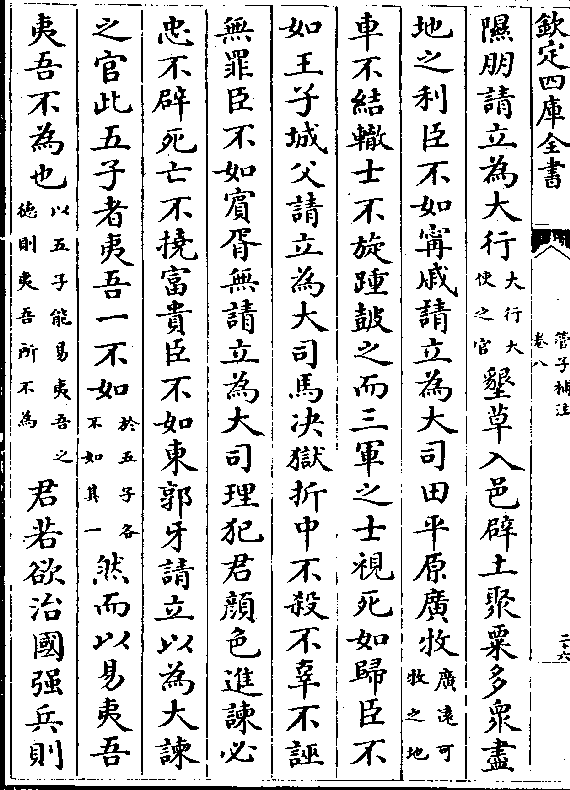 欽定四庫全書
管子補注
卷八
二十六
隰朋請立為大行大行大使之官墾草入邑辟土聚粟多衆盡
地之利臣不如甯戚請立為大司田平原廣牧廣遠可牧之地
車不結轍士不旋踵鼓之而三軍之士視死如歸臣不
如王子城父請立為大司馬决獄折中不殺不辜不誣
無罪臣不如賔胥無請立為大司理犯君顔色進諫必
忠不辟死亡不撓富貴臣不如東郭牙請立以為大諫
之官此五子者夷吾一不如於五子各不如其一然而以易夷吾
夷吾不為也以五子能易夷吾之徳則夷吾所不為君若欲治國强兵則